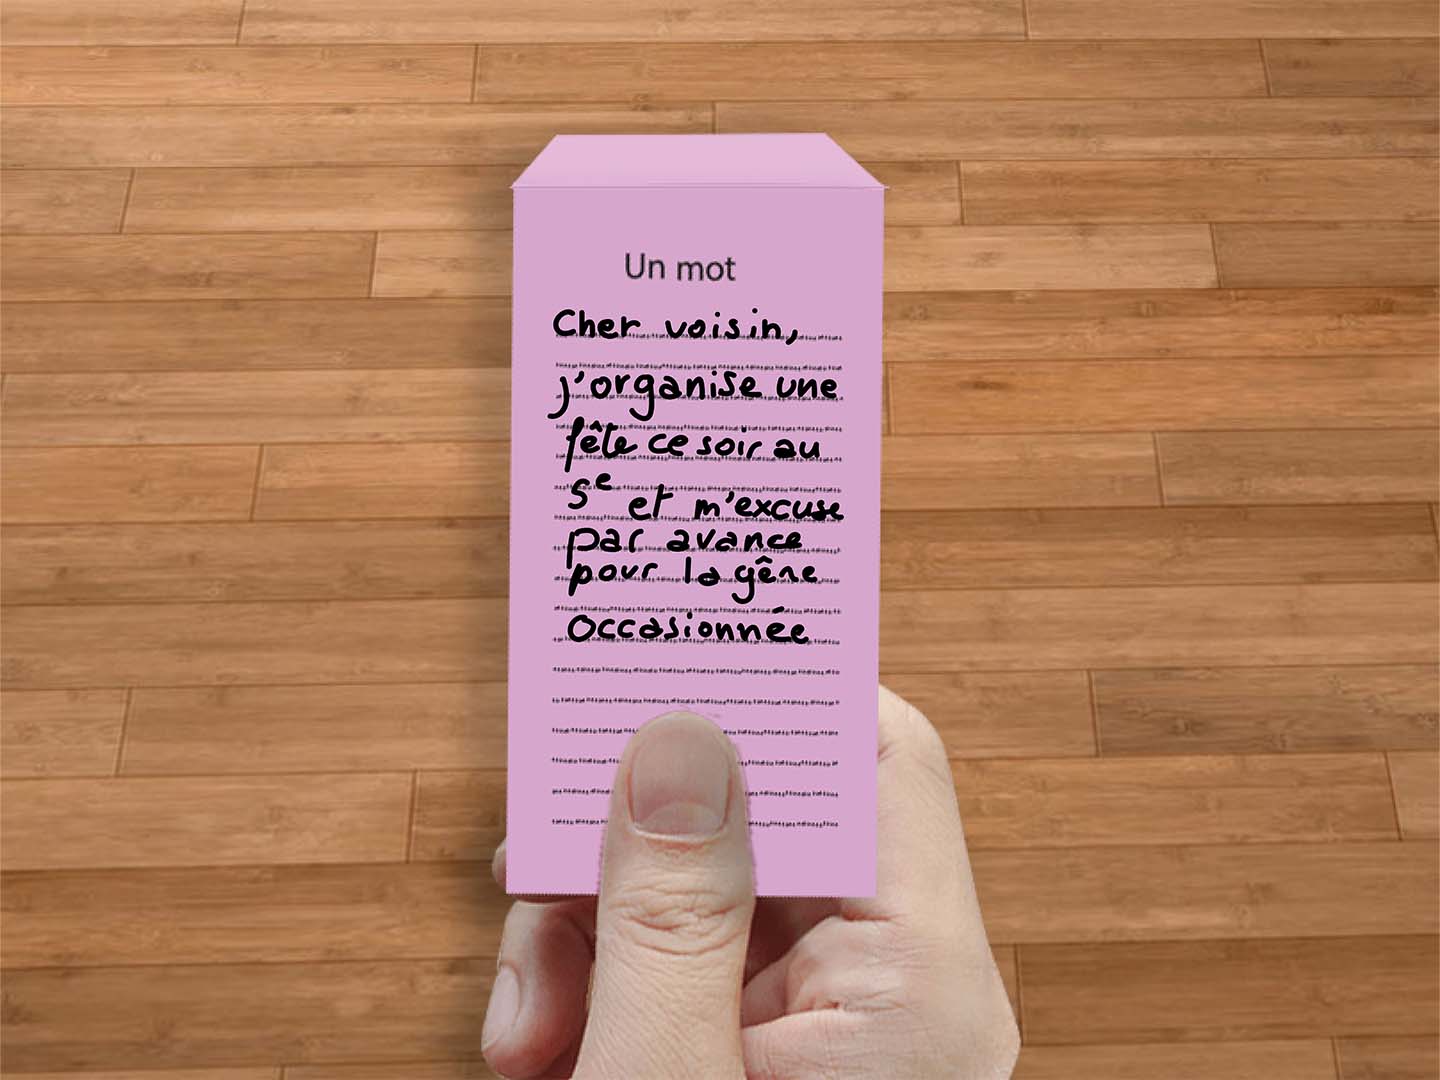 Un mot
Cher voisin,
j'organise une
fête ce soir au
5e et m'excuse
par avance
pour la gêne
occasionnée